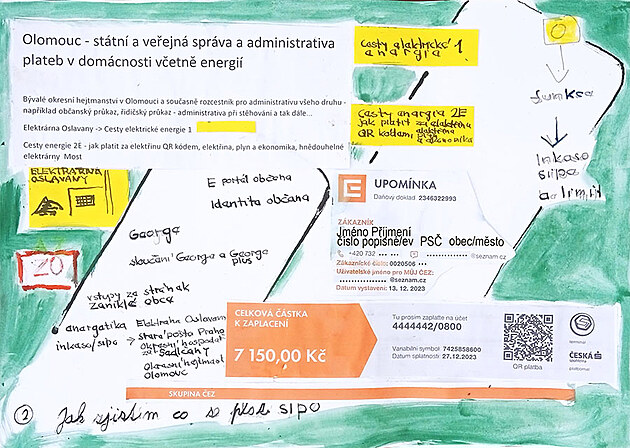 Olomouc - státní a veřejná správa a administrativa
plateb v domácnosti včetně energií
Bývalé okresní hejtmanství v Olomouci a současně rozcestník pro administrativu všeho druhu -
například občanský průkaz, řidičský průkaz - administrativa při stěhování a tak dále...
Elektrárna Oslavany -> Cesty elektrické energie 1
Cesty energie 2E - jak platit za elektřinu QR kódem, elektřina, plyn a ekonomika, hnědouhelné
elektrárny Most
Cesty elektrické 1
anargia
Cesty anargia 2E
jak platit za elektřinu
QR kódem, elektřina
a ekonomika
0
funkce
Inkaso
sipo
a limit
ELEKTRÁRNA
OSLAVANY
E portál občana
Identita občana
George
sloučání George a George
plus
vstupy za strának
zaniklé obce
20
anargatika
inkaso/sipo
Elektrárna Oslavany
stará pošta Praha
Okrasní hospodář
zát Sedlčany
Okrasní hejtmanst
Olomouc
UPOMÍNKA
Daňový doklad 2346322993
ZÁKAZNÍK
Jméno Příjmení
číslo popisné/ev PSČ obec/město
+420 732 @seznam.cz
Zákaznické číslo: 0020506
Uživatelské jméno pro MŮJ ČEZ:
@seznam.cz
Datum vystavení: 13. 12. 2023
CELKOVÁ ČÁSTKA
K ZAPLACENÍ
7 150,00 Kč
Tu prosím zaplaťte na účet
4444442/0800
Variabilní symbol 7425858600
Datum splatnosti 27.12.2023
QR platba
ČESKÁ
SKUPINA ČEZ
2 Jak zjistím co se platí SIPO